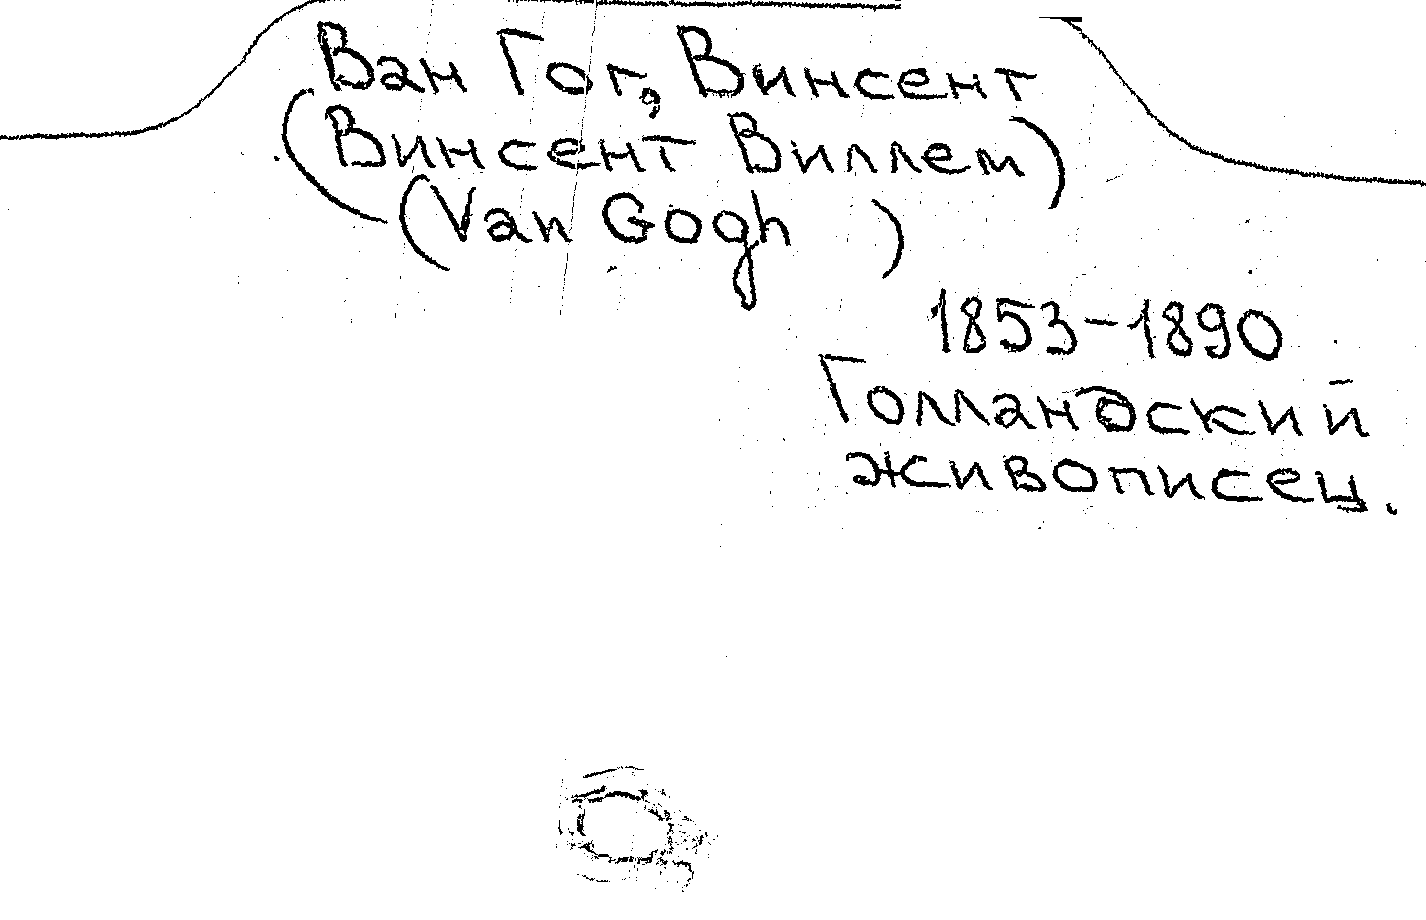 Ван Гог, Винсент
(Винсент Виллем)
(Van Gogh )
1853-1890
Голландский
живописец.